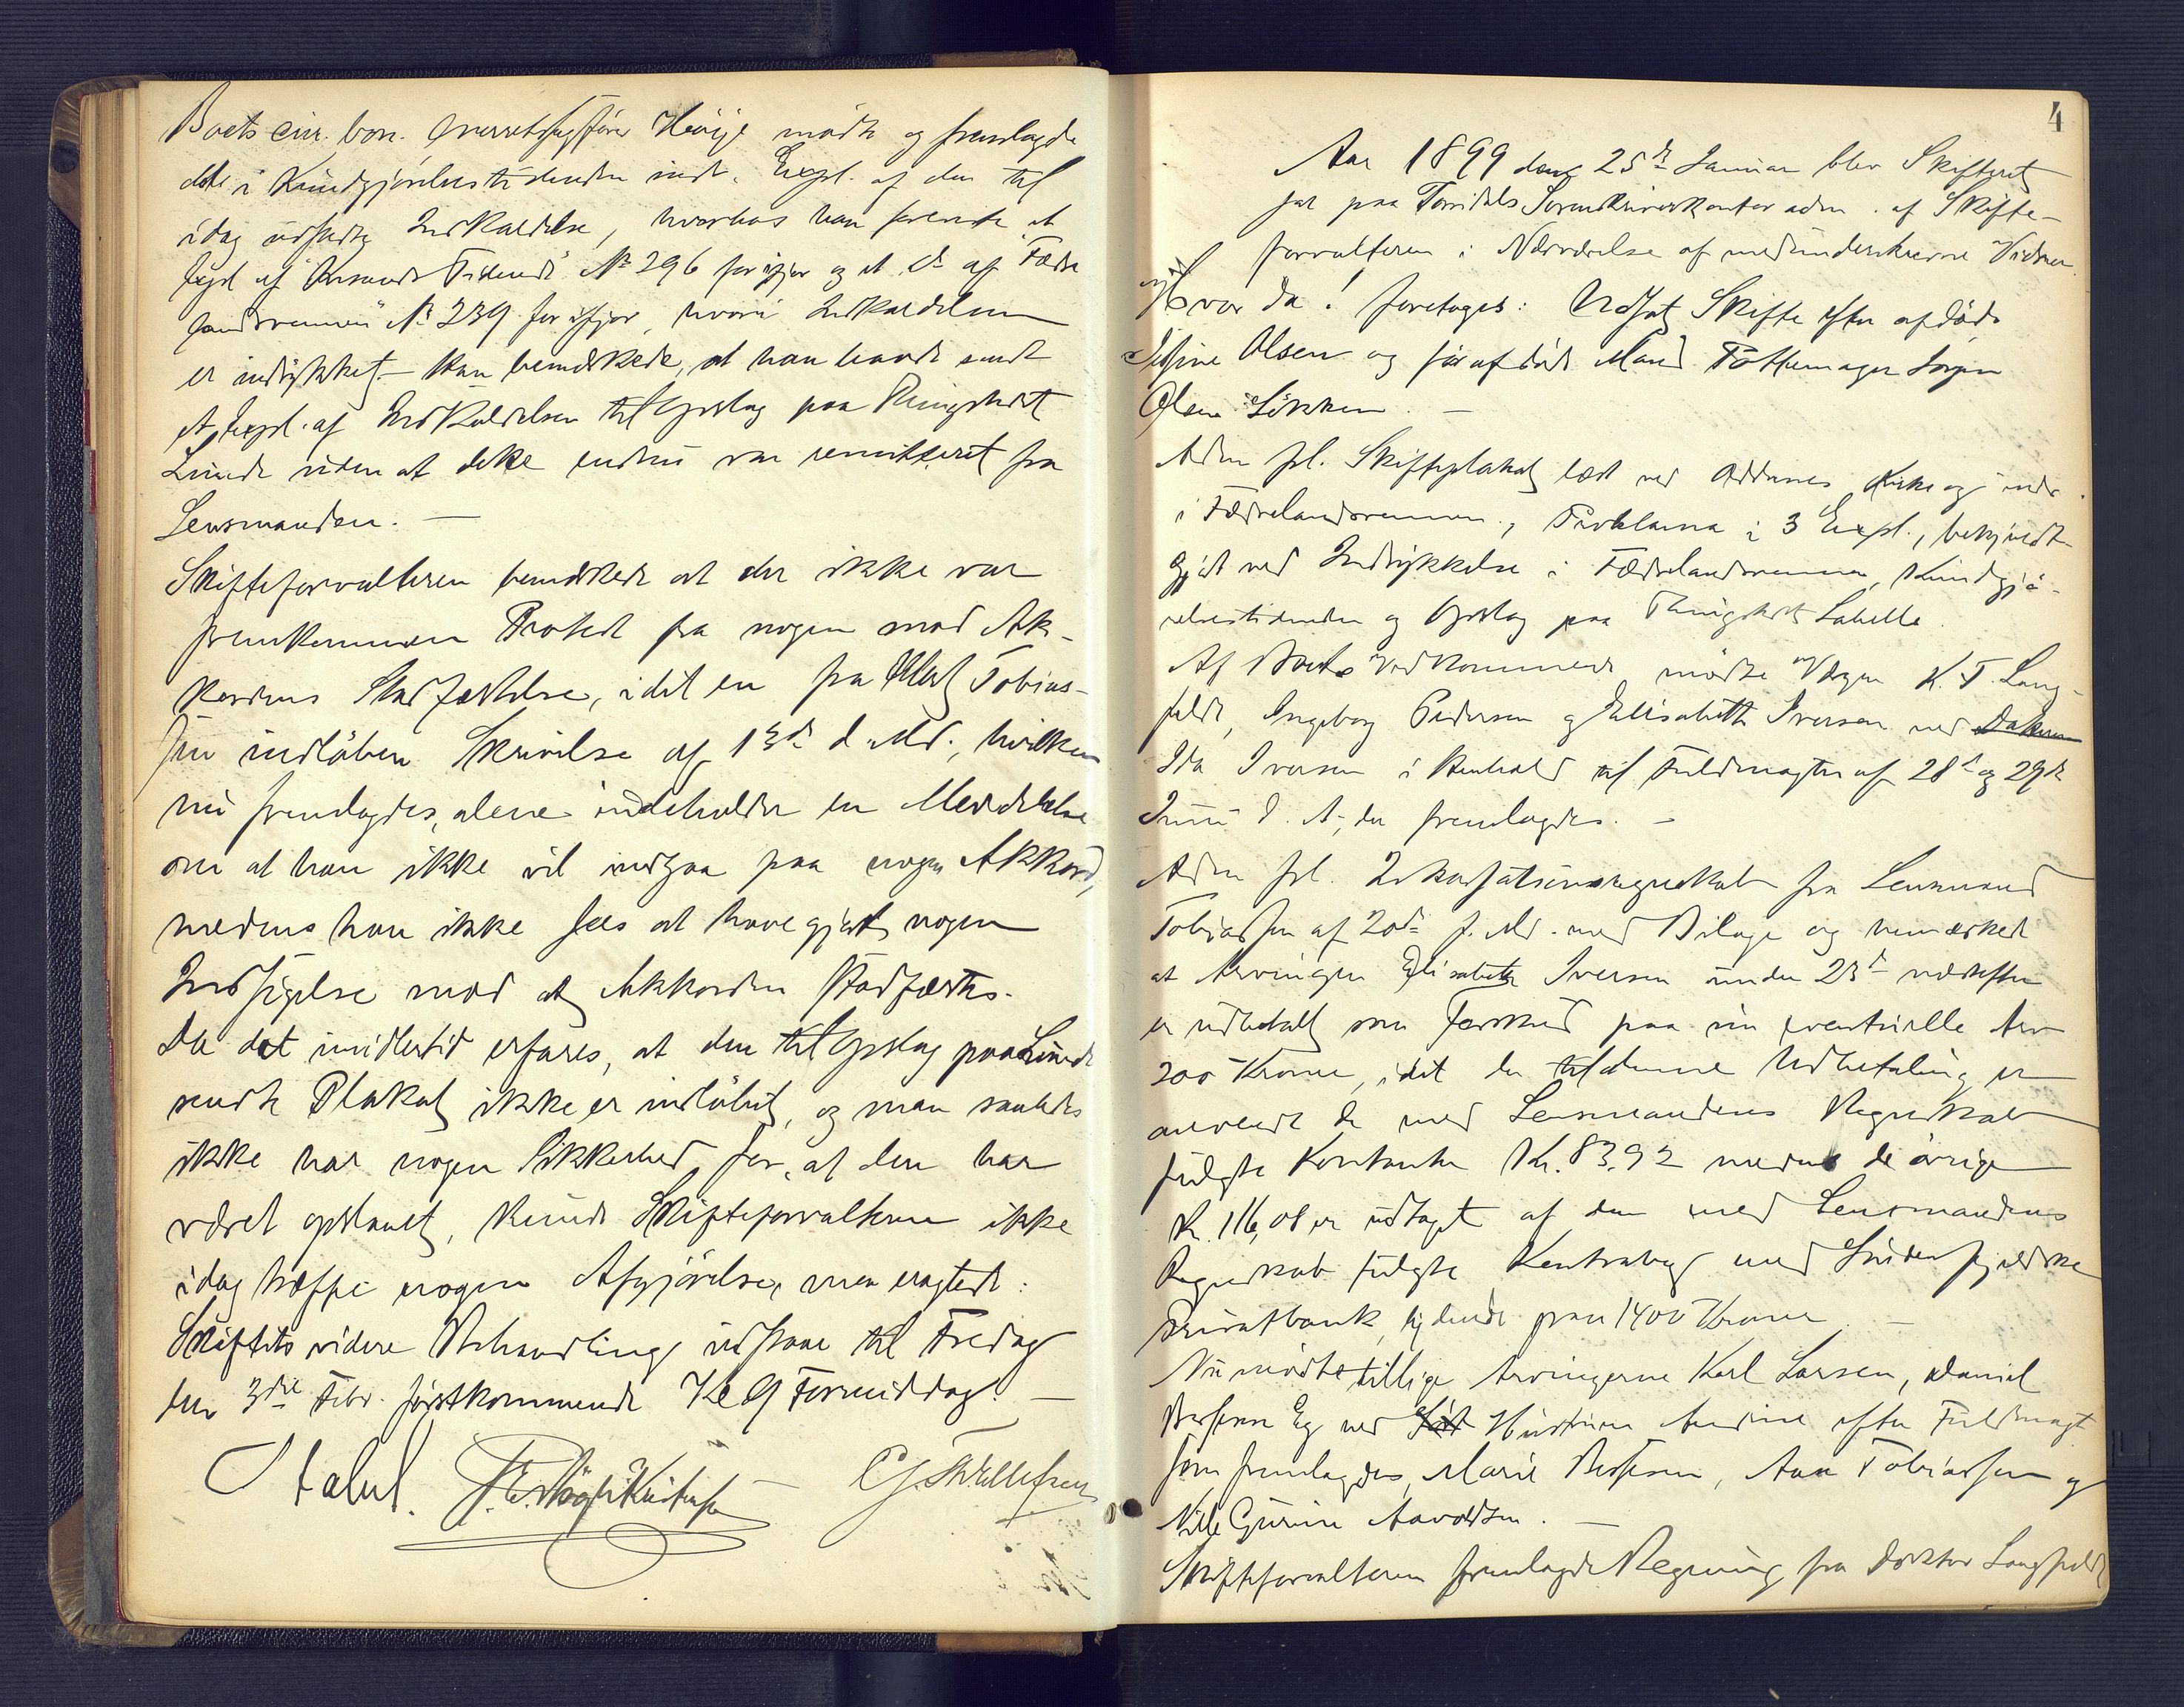 Boets cur. bon. Overretssagfører Heÿje mødte og fremlagde
det i Kundgjørelsestidenden indr. Expl. af den til
idag udstedte Indkaldelse, hvorhos han foreviste et
Expl af "Krsands Tidende" No 296 for ifjor og et do af "Fædre
landsvennen" No 239 for ifjor, hvori Indkaldelsen
er indrykket. — Han bemærkede, at han havde sendt
et Expl. af Indkaldelsen til Opslag paa Thingstedet
Lunde uden at dette endnu var remitteret fra
Lensmanden. —
Skifteforvalteren bemærkede at der ikke var
fremkommen Protest fra nogen mod Ak-
kordens Stadfæstelse, idet en fra Tobias-
sen indløben Skrivelse af 13de d. Md., hvilken
nu fremlagdes, alene indeholder en Meddelelse
om at han ikke vil indgaa paa nogen Akkord,
medens han ikke sees at have gjort nogen
Indsigelse mod at Akkorden stadfæstes.
Da det imidlertid erfares, at den til Opslag paa Lunde
sendte Plakat ikke er indløbet, og man saaledes
ikke har nogen Sikkerhed for, at den har
været opslaaet, kunde Skifteforvalteren ikke
idag træffe nogen Afgjørelse, men eragtede:
Skiftets videre Behandling udstaar til Fredag
den 3die Febr. førstkommende Kl 9 Formiddag. —
Stabel.
4
Aar 1899 den 25de Januar blev Skifteret
sat paa Torridals Sorenskriverkontor adm. af Skifte-
forvalteren i Nærværelse af medunderskrevne Vidner.
Hvor da! foretoges: Udsat Skifte efter afdøde
Olsen og før afdøde Mand Pottemager Jørgen
Olsen Løkken. —
Adm frl. Skifteplakat læst ved Oddernes Kirke og indr.
i Fædrelandsvennen, Proklama i 3 Expl., bekjendt-
gjort ved Indrykkelse i Fædrelandsvennen, Kundgjø-
relsestidenden og Opslag paa Thingstedet Sabelle.
Af Boets Vedkommende mødte Værgen K. T. Lang-
feldt, Ingeborg Pedersen og Elisabeth Iversen ved
Ida Iversen i Henhold til Fuldmagter af 28de og 29de
Juni d. A., der fremlagdes. —
Adm frl. Inkassationsregnskab fra Lensmand
Tobiassen af 20de f. Md. med Bilage og bemærkede
at Arvingen Elisabeth Iversen under 23de næstefter
er udbetalt som Forskud paa sin eventuelle Arv
200 Kroner, idet der til denne Udbetaling er
anvendt de med Lensmandens Regnskab
fulgte Kontanter Kr. 83,92 medens de øvrige
Kr. 116,08 er udtaget af den med Lensmandens
Regnskab fulgte Kontrabog med Søndenfjeldske
Privatbank, lydende paa 1400 Kroner. —
Nu mødte tillige Arvingerne Karl Larsen, Daniel
Eg ved Hustruen Andine efter Fuldmagt
som fremlagdes, Marie, Aan Tobiassen og
Nille Gurine Aavoldsen. —
Skifteforvalteren fremlagde Regning fra Doktor Langfeldt